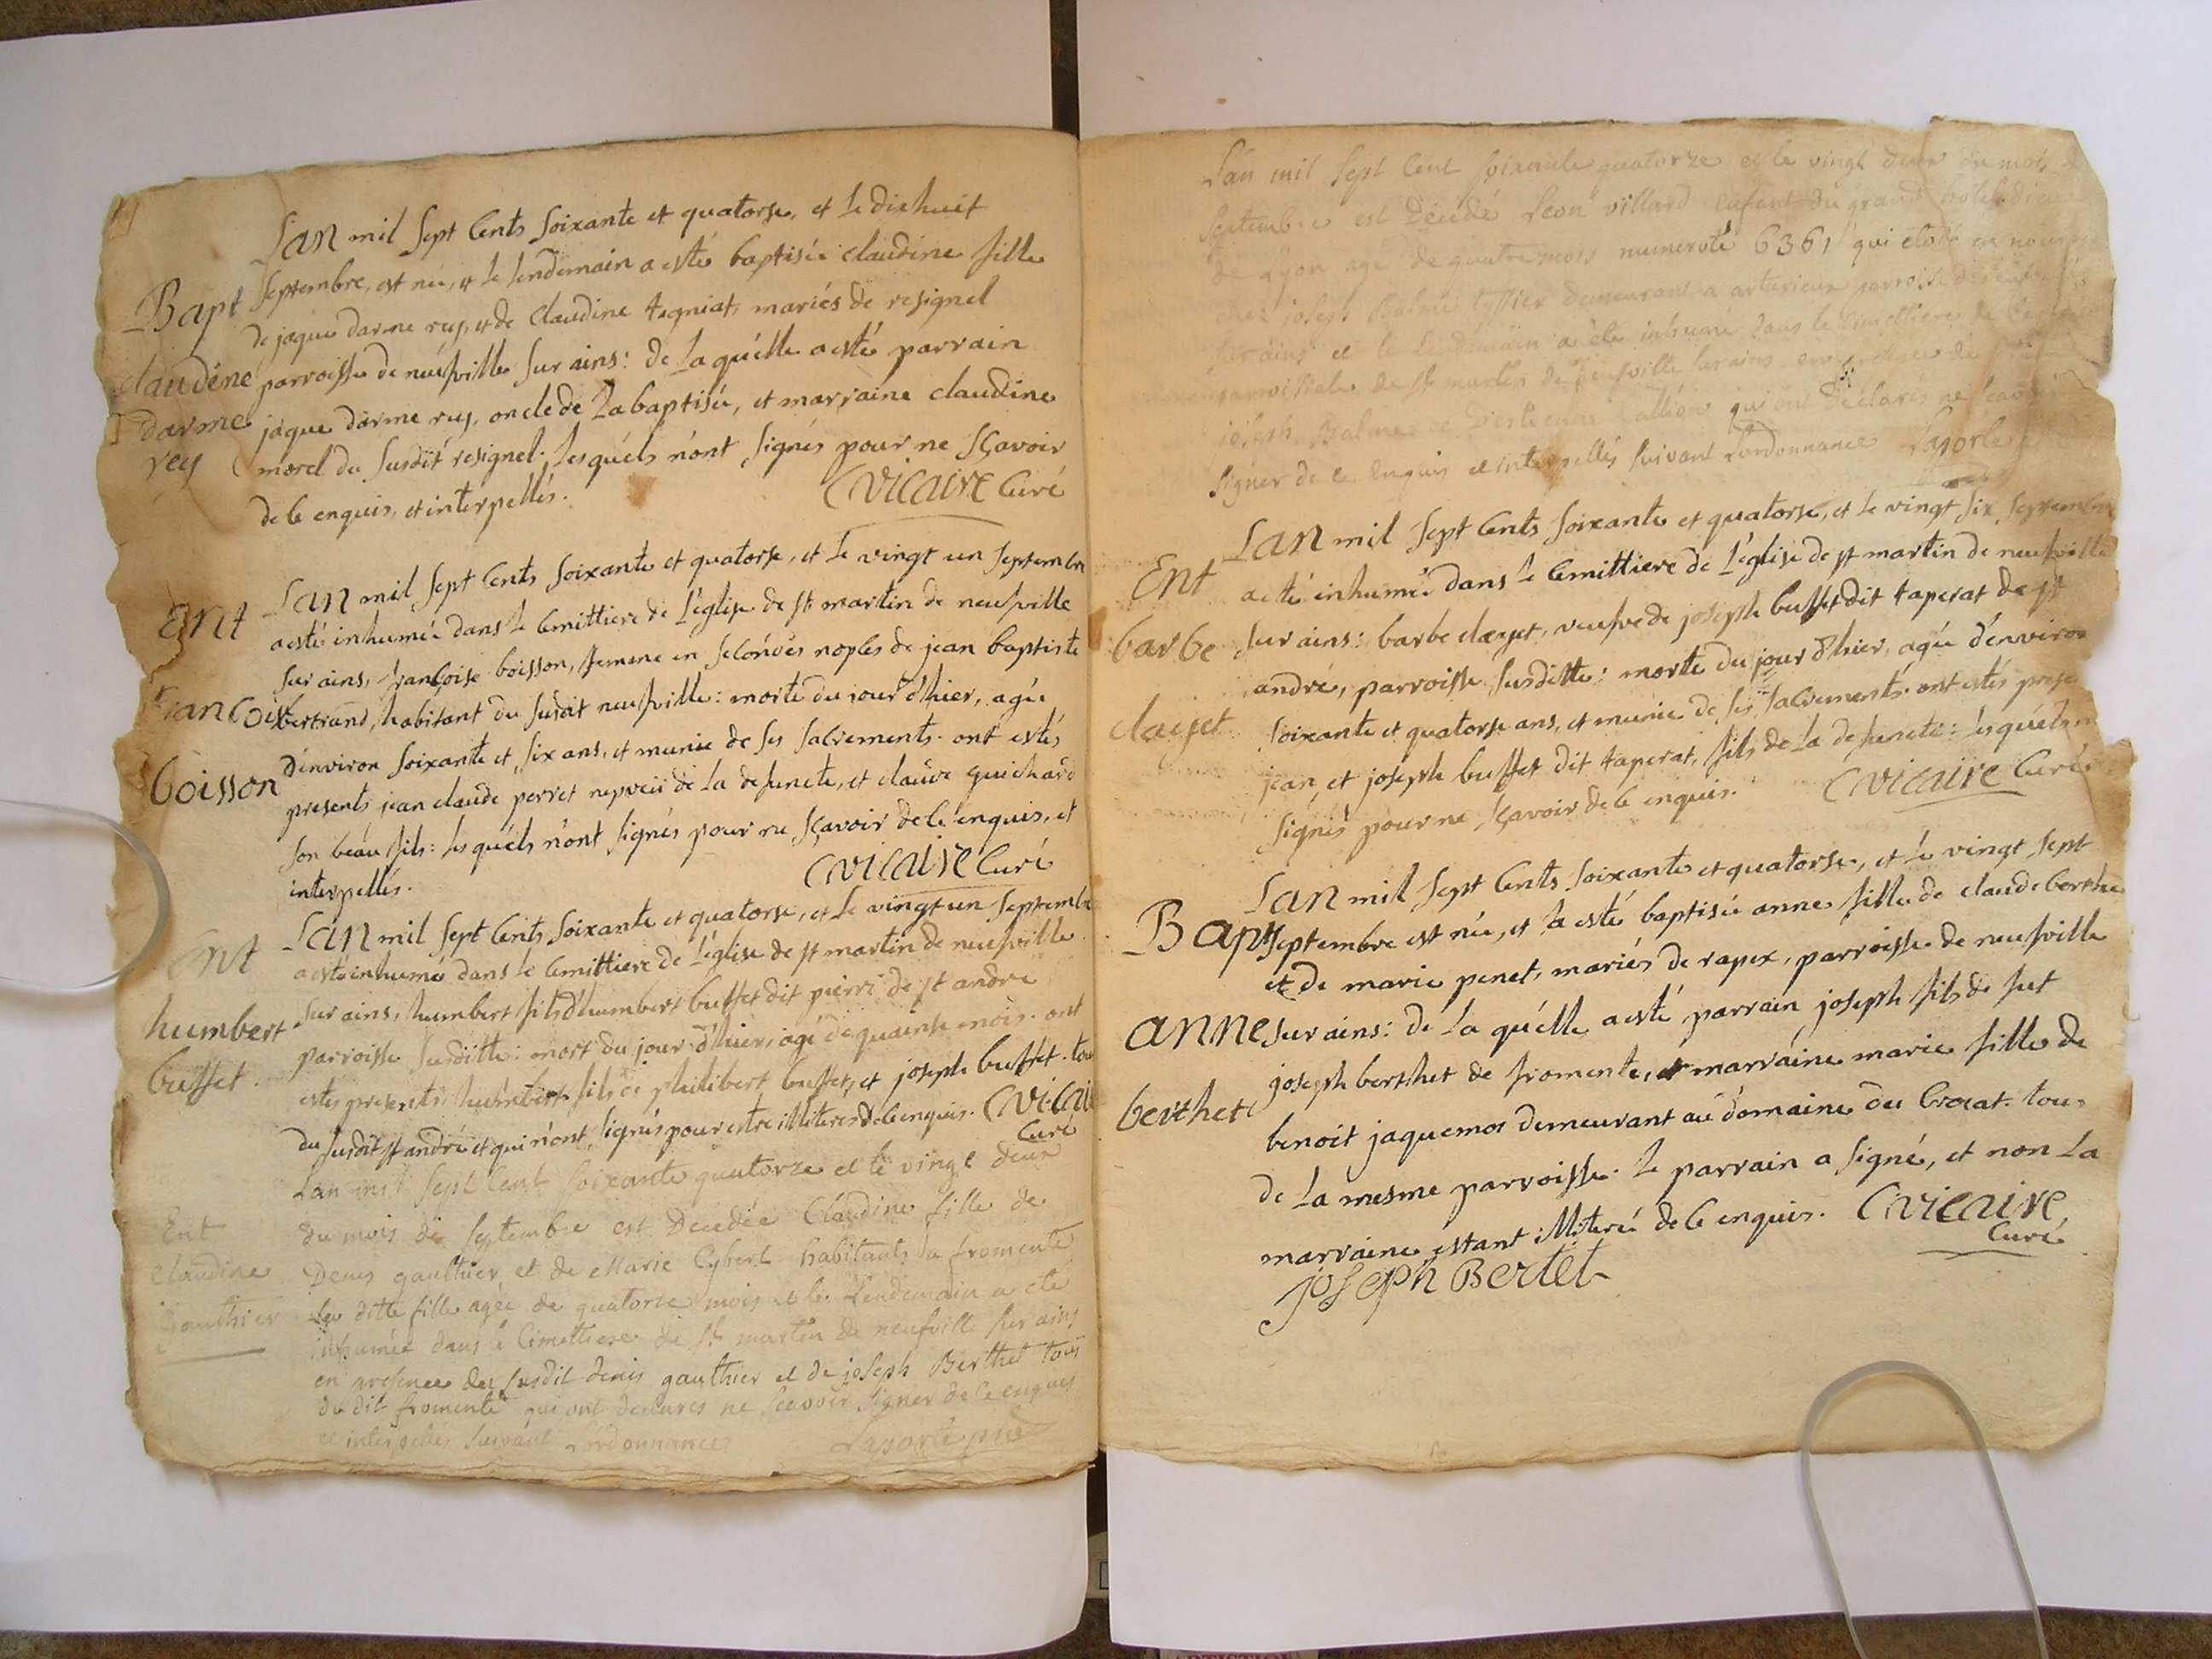 Lan mil sept cents soixante et quatorse, et le dixhuit
Bapt septembre, est née, et le lendemain a esté baptisée claudine fille
de jaque darme rey, et de claudine tegniat, mariés de resignel
claudine parroisse de neufville sur ains: de la quélle a esté parrain
darme jaque darme rey, oncle de la baptisée, et marraine claudine
rey morel du susdit resignel. lesquéls n'ont signés pour ne sçavoir
de ce enquis, et interpellés. C vicaire Curé
Ent Lan mil sept cents soixante et quatorse, et le vingt un septembre
a esté inhumée dans le cemittiere de l'église de st martin de neufville
sur ains, françoise boisson, femme en secondes nopces de jean baptiste
francoise bertrand, habitant du susdit neufville: morte du jour d'hier, agée
d'environ soixante et six ans, et munie de ses sacrements. ont estés
boisson presents jean claude perret nepveü de la defuncte, et claude guichard
son beau fils: lesquéls n'ont signés pour ne sçavoir de ce enquis, et
interpellés. C vicaire Curé
Ent Lan mil sept cents soixante et quatorse, et le vingt un septembre
a esté inhumé dans le cemittiere de l'église de st martin de neufville
humbert sur ains, humbert fils d'humbert buffet dit pierri de st andré
buffet. parroisse susditte: mort du jour d'hier, agé de quainse mois. ont
estés presents humbert fils de philibert buffet, et joseph buffet. tous
du susdit st andré et qui n'ont signés pour estre illiterés de ce enquis. C vicaire
Curé
Lan mil sept cent soixante quatorze et le vingt deux
Ent du mois de septembre est Decedée Claudine fille de
Claudine Denis gauthier et de Marie Cybert habitants du fromente
gauthier la ditte fille agée de quatorze mois et le Lendemain a eté
inhumée dans le Cimettiere de st martin de neufville sur ains
en presence du susdit denis gauthier et de joseph Berthet tous
du dit fromente qui ont declarés ne sçavoir signer de ce enquis
et interpellés suivant L'ordonnance Laporte
Lan mil sept Cent soixante quatorze et le vingt deux du mois de
septembre est Decedé Leon villard enfant du grand hotel dieu
de Lyon agé de quatre mois numeroté 6361 qui etoit en nourrice
chez joseph Balme tyssier demeurant a
sur ains et le Lendemain a eté inhumé dans le Cimettiere de
parroissiale de st martin de neufville sur ains en presence de
joseph Balme et D'estienne qui ont Déclarés ne sçavoir
signer de ce enquis et interpellés suivant L'ordonnance Laporte
Lan mil sept cents soixante et quatorse, et le vingt six septembre
Ent a esté inhumée dans le cemittiere de l'église de st martin de neufville
barbe sur ains: barbe clayet, veufve de joseph buffet dit taperat de st
andré, parroisse susditte: morte du jour d'hier, agée d'environ
clayet soixante et quatorse ans, et munie de ses sacrements. ont estés
jean, et joseph buffet dit taperat, fils de la defuncte: lesquéls
signés pour ne sçavoir de ce enquis. C vicaire Curé
Lan mil sept cents soixante et quatorse, et le vingt sept
Bapt septembre est née, et a esté baptisée anne fille de claude berthet
et de marie penet, mariés de rapex, parroisse de neufville
anne sur ains: de la quélle a esté parrain joseph fils de fut
joseph berthet de fromente, et marraine marie fille de
berthet benoit jaquemot demeurant au domaine du Crozat. tous
de la mesme parroisse. le parrain a signé, et non la
marraine estant illiterée de ce enquis. C vicaire
Curé
joseph Bertet